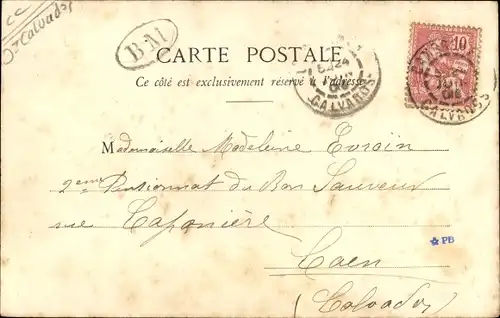 CC
Ot Calvados
BM
CARTE POSTALE
Ce côté est exclusivement réservé à l'adresse
CALVADOS
10
CALVADOS
Mademoiselle Madeleine
2eme Pensionnat du Bon Sauveur
rue Caponière
PB
Caen
(Calvados